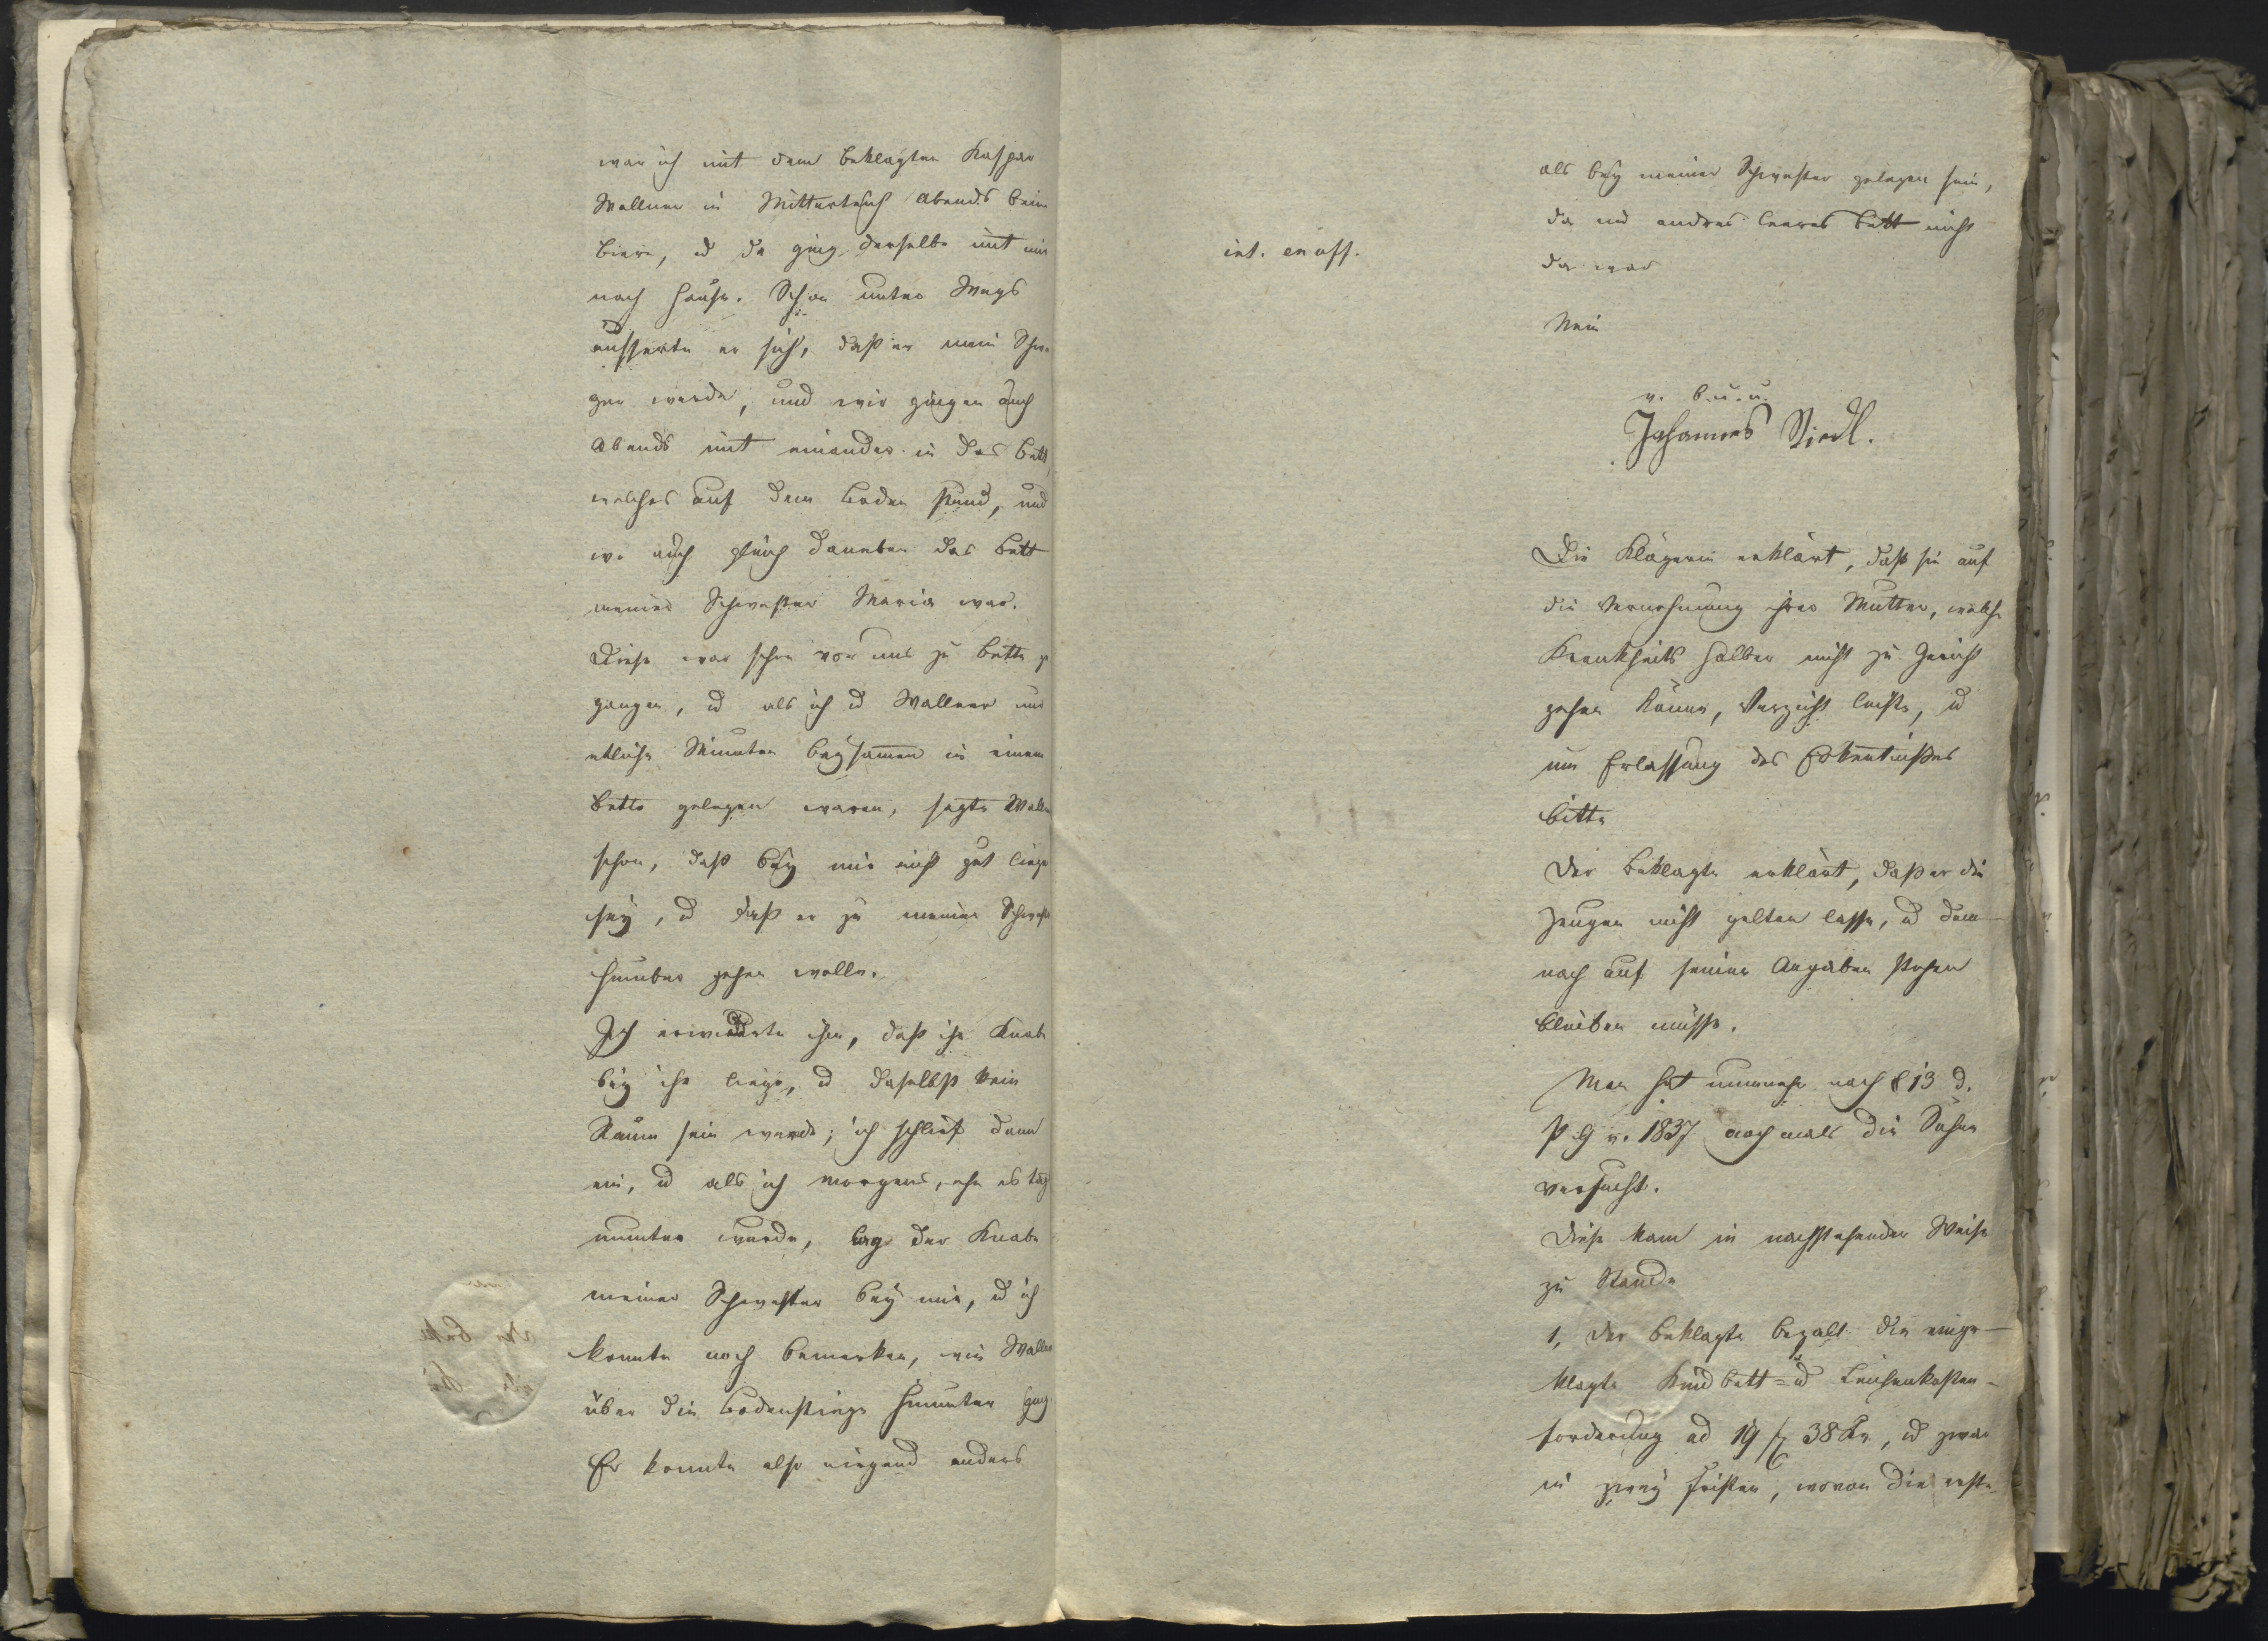 war ich mit dem Beklagten Kaspar
Wallner in Mitterteich Abends beim
Biere, u da ging derselbe mit mir
nach Hause. Schon unter Wegs
äusserte er sich, daß er mein Schwa
ger werde, und wir gingen auch
Abends mit einander in das Bett
welches auf dem Boden stund, und
wo auch gleich daneben das Bett
meiner Schwester Maria war.
Diese war schon vor uns zu Bette ge
gangen, u als ich u Wallner nur
etliche Minuten beysamen in einem
Bette gelegen waren, sagte Wallner
schon, daß bey mir nicht gut liegen
sey, u daß er zu meiner Schwester
hinüber gehen wolle.
Ich erwiederte ihm, daß ihr Knabe
bey ihr liege, u daselbst kein
Raum sein werde; ich schlief dann
ein, u als ich morgens, ehe es Tag
wurde, lag der Knabe
meiner Schwester bey mir, u ich
konnte noch bemerken, wie Wallner
über die Bodenstiege hinunter ging
Er konnte also nirgend anders
als bey meiner Schwester gelegen sein,
da ein andres leeres Bett nicht
da war
int. en off.
Nein
v. b. u. u.
Johannes Riedl.
Die Klägerin erklärt, daß sie auf
die Vernehmung ihrer Mutter, welche
Krankheits halber nicht zu Gericht
gehen könne, Verzicht leiste, u
um Erlassung des Erkentnißes
bitte
Der Beklagte erklärt, daß er die
Zeugen nicht gelten lasse, u dem-
nach auf seinen Angaben stehen
bleiben müsse.
Man hat nunmehr nach § 13 d.
P G v. 1837 nochmals die Sühne
versucht.
Diese kam in nachstehender Weise
zu Stande
1, Der Beklagte bezalt die einge-
klagte Kindbett= u Leichenkosten-
forderung ad 19 f 38 Kr, u zwar
in zwey Fristen, wovon die erste